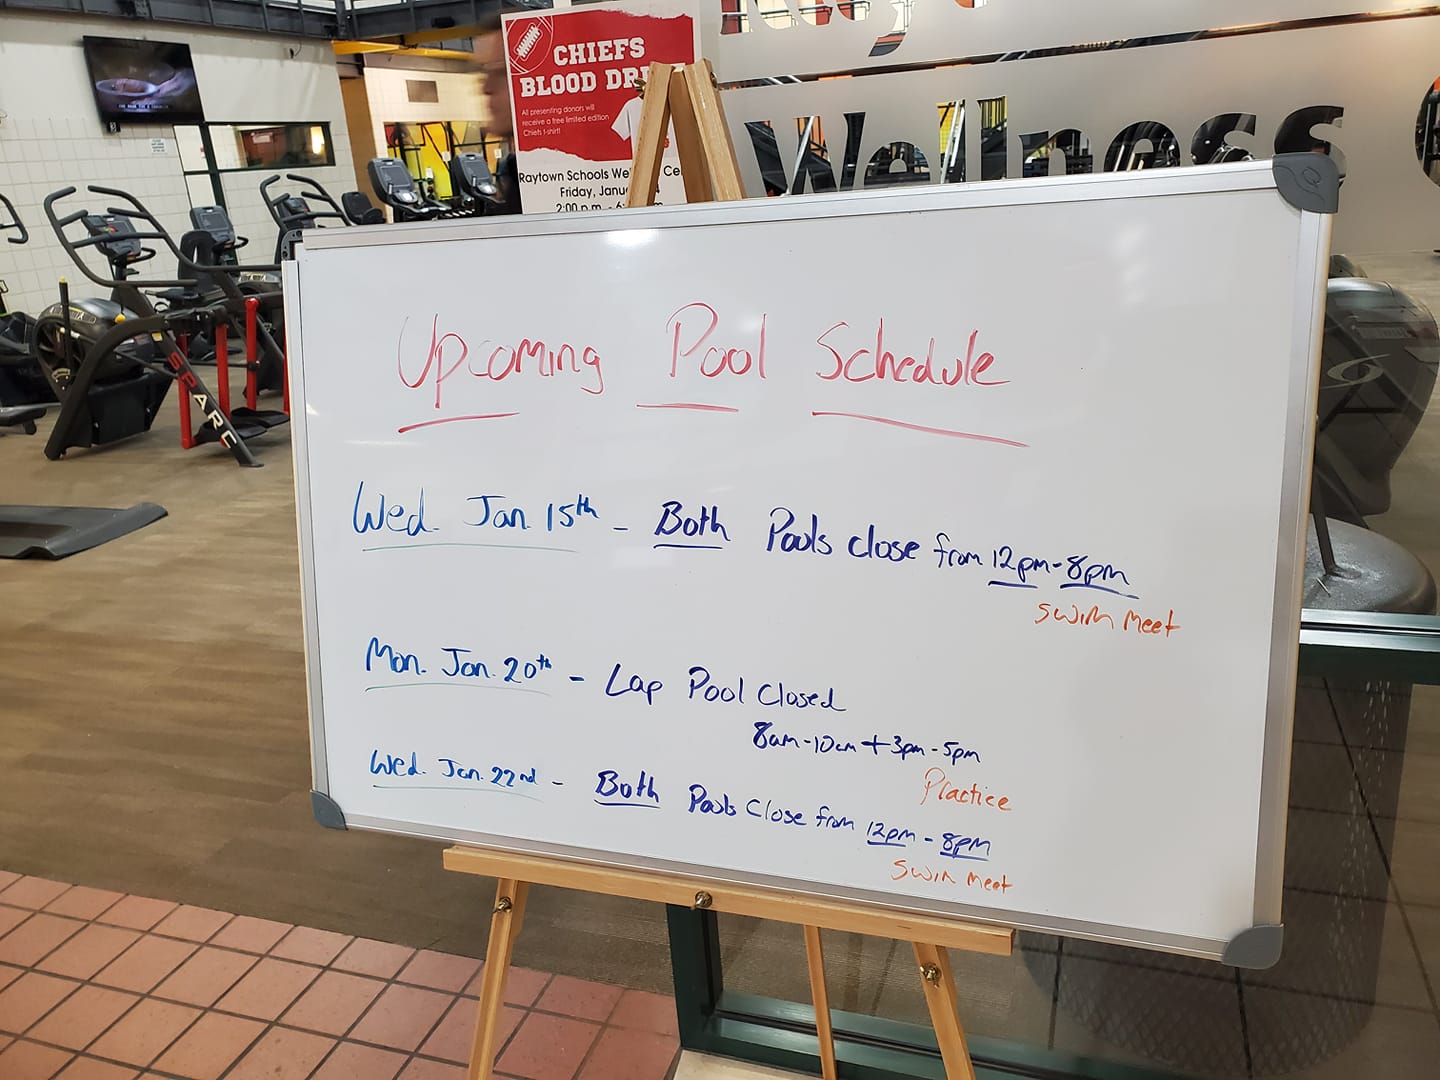 CHIEFS
BLOOD
All presenting donors will
receive a free limited edition
Chiefs t-shirt!
Raytown Schools
Friday,
2:00 p.m. -
Wellness
SPARC
Upcoming Pool Schedule
Wed. Jan. 15th - Both Pools close from 12pm-8pm
Swim Meet
Mon. Jan. 20th - Lap Pool Closed
8am-10am + 3pm-5pm
Practice
Wed. Jan. 22nd - Both Pools Close from 12pm - 8pm
Swim Meet